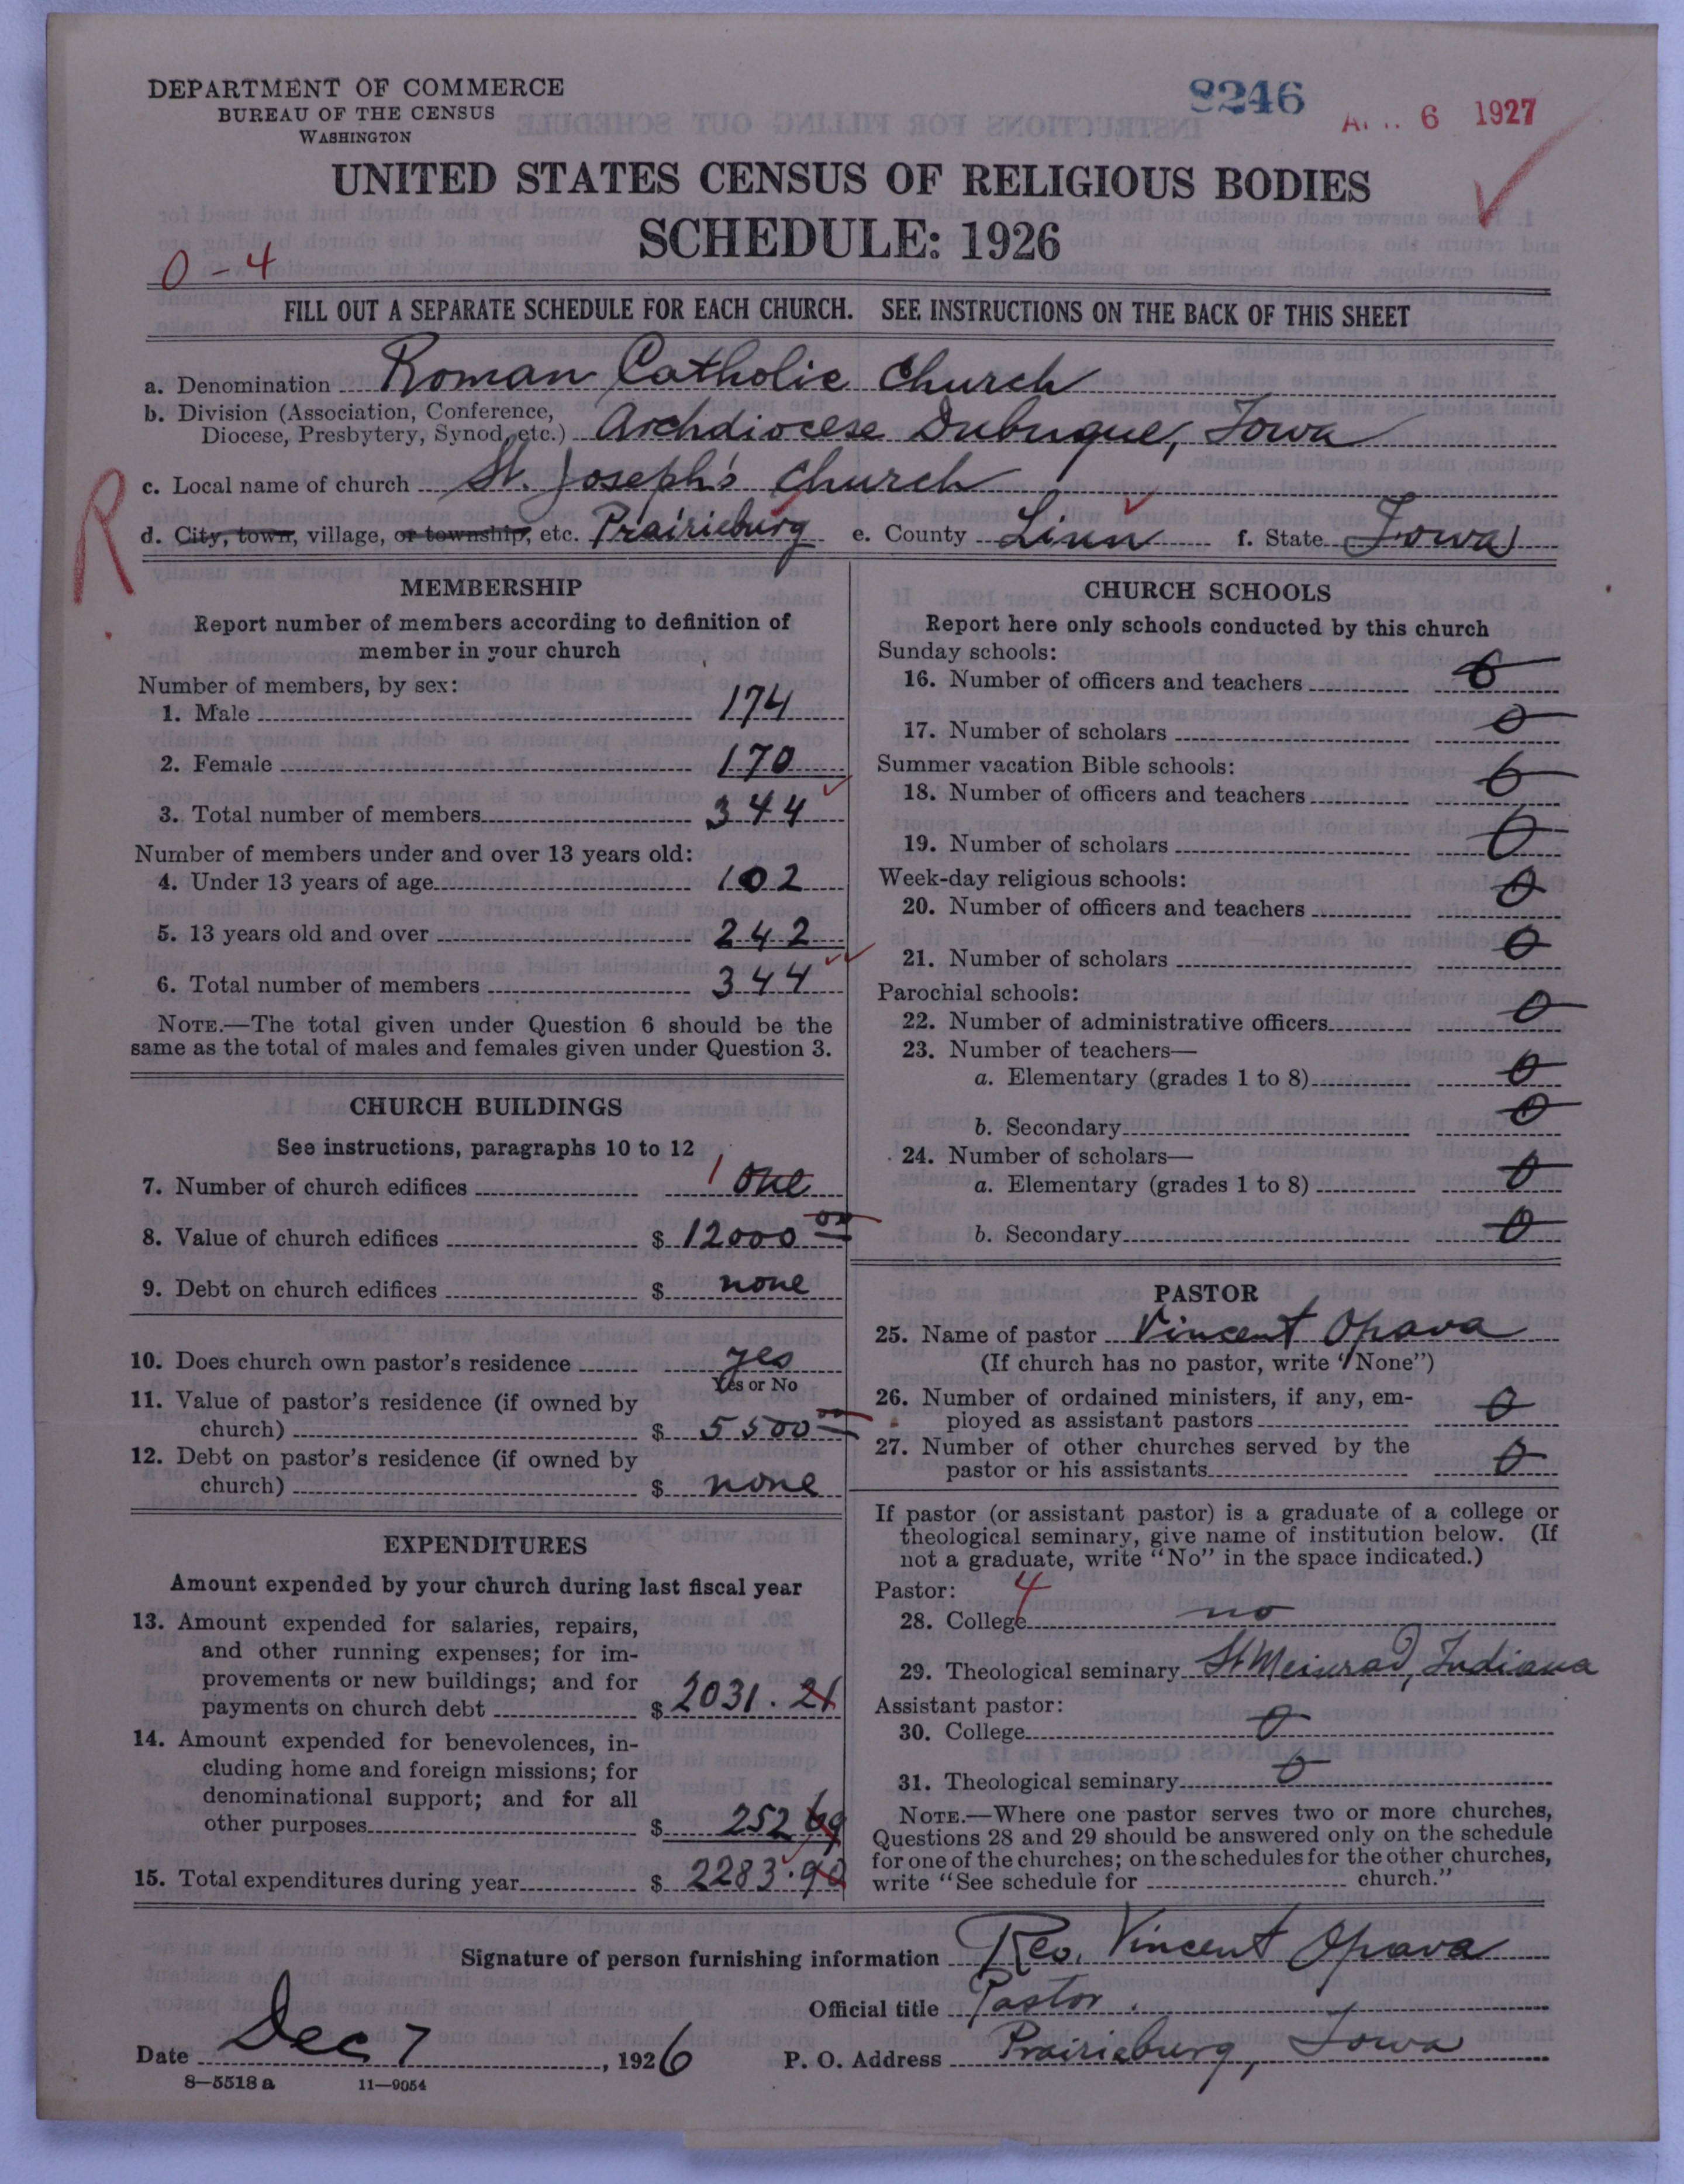 DEPARTMENT OF COMMERCE
BUREAU OF THE CENSUS
WASHINGTON
8246
6 1927
UNITED STATES CENSUS OF RELIGIOUS BODIES
SCHEDULE: 1926
0-4
FILL OUT A SEPARATE SCHEDULE FOR EACH CHURCH. SEE INSTRUCTIONS ON THE BACK OF THIS SHEET
a. Denomination Roman Catholic Church
b. Division (Association, Conference,
Diocese, Presbytery, Synod, etc.) Archdiocese Dubuque, Iowa
R
c. Local name of church St. Joseph's Church
d. City, town, village, or township, etc. Prairieburg e. County Linn f. State Iowa
MEMBERSHIP
Report number of members according to definition of
member in your church
Number of members, by sex:
1. Male 174
2. Female 170
3. Total number of members 344
Number of members under and over 13 years old:
4. Under 13 years of age 102
5. 13 years old and over 242
6. Total number of members 344
NOTE.—The total given under Question 6 should be the
same as the total of males and females given under Question 3.
CHURCH BUILDINGS
See instructions, paragraphs 10 to 12
7. Number of church edifices 1 One
8. Value of church edifices $ 12000 00
9. Debt on church edifices $ none
10. Does church own pastor's residence yes
Yes or No
11. Value of pastor's residence (if owned by
church) $ 5500 00
12. Debt on pastor's residence (if owned by
church) $ none
EXPENDITURES
Amount expended by your church during last fiscal year
13. Amount expended for salaries, repairs,
and other running expenses; for im-
provements or new buildings; and for
payments on church debt $ 2031.21
14. Amount expended for benevolences, in-
cluding home and foreign missions; for
denominational support; and for all
other purposes $ 252 69
15. Total expenditures during year $ 2283.90
CHURCH SCHOOLS
Report here only schools conducted by this church
Sunday schools:
16. Number of officers and teachers 0
17. Number of scholars 0
Summer vacation Bible schools:
18. Number of officers and teachers 0
19. Number of scholars 0
Week-day religious schools:
20. Number of officers and teachers 0
21. Number of scholars 0
Parochial schools:
22. Number of administrative officers 0
23. Number of teachers—
a. Elementary (grades 1 to 8) 0
b. Secondary 0
24. Number of scholars—
a. Elementary (grades 1 to 8) 0
b. Secondary 0
PASTOR
25. Name of pastor Vincent Opava
(If church has no pastor, write "None")
26. Number of ordained ministers, if any, em-
ployed as assistant pastors 0
27. Number of other churches served by the
pastor or his assistants 0
If pastor (or assistant pastor) is a graduate of a college or
theological seminary, give name of institution below. (If
not a graduate, write "No" in the space indicated.)
Pastor: 4
28. College no
29. Theological seminary St Meinrad, Indiana
Assistant pastor:
30. College 0
31. Theological seminary 0
NOTE.—Where one pastor serves two or more churches,
Questions 28 and 29 should be answered only on the schedule
for one of the churches; on the schedules for the other churches,
write "See schedule for church."
Signature of person furnishing information Rev. Vincent Opava
Official title Pastor.
Date Dec 7, 1926 P. O. Address Prairieburg, Iowa
8—5518a 11—9054